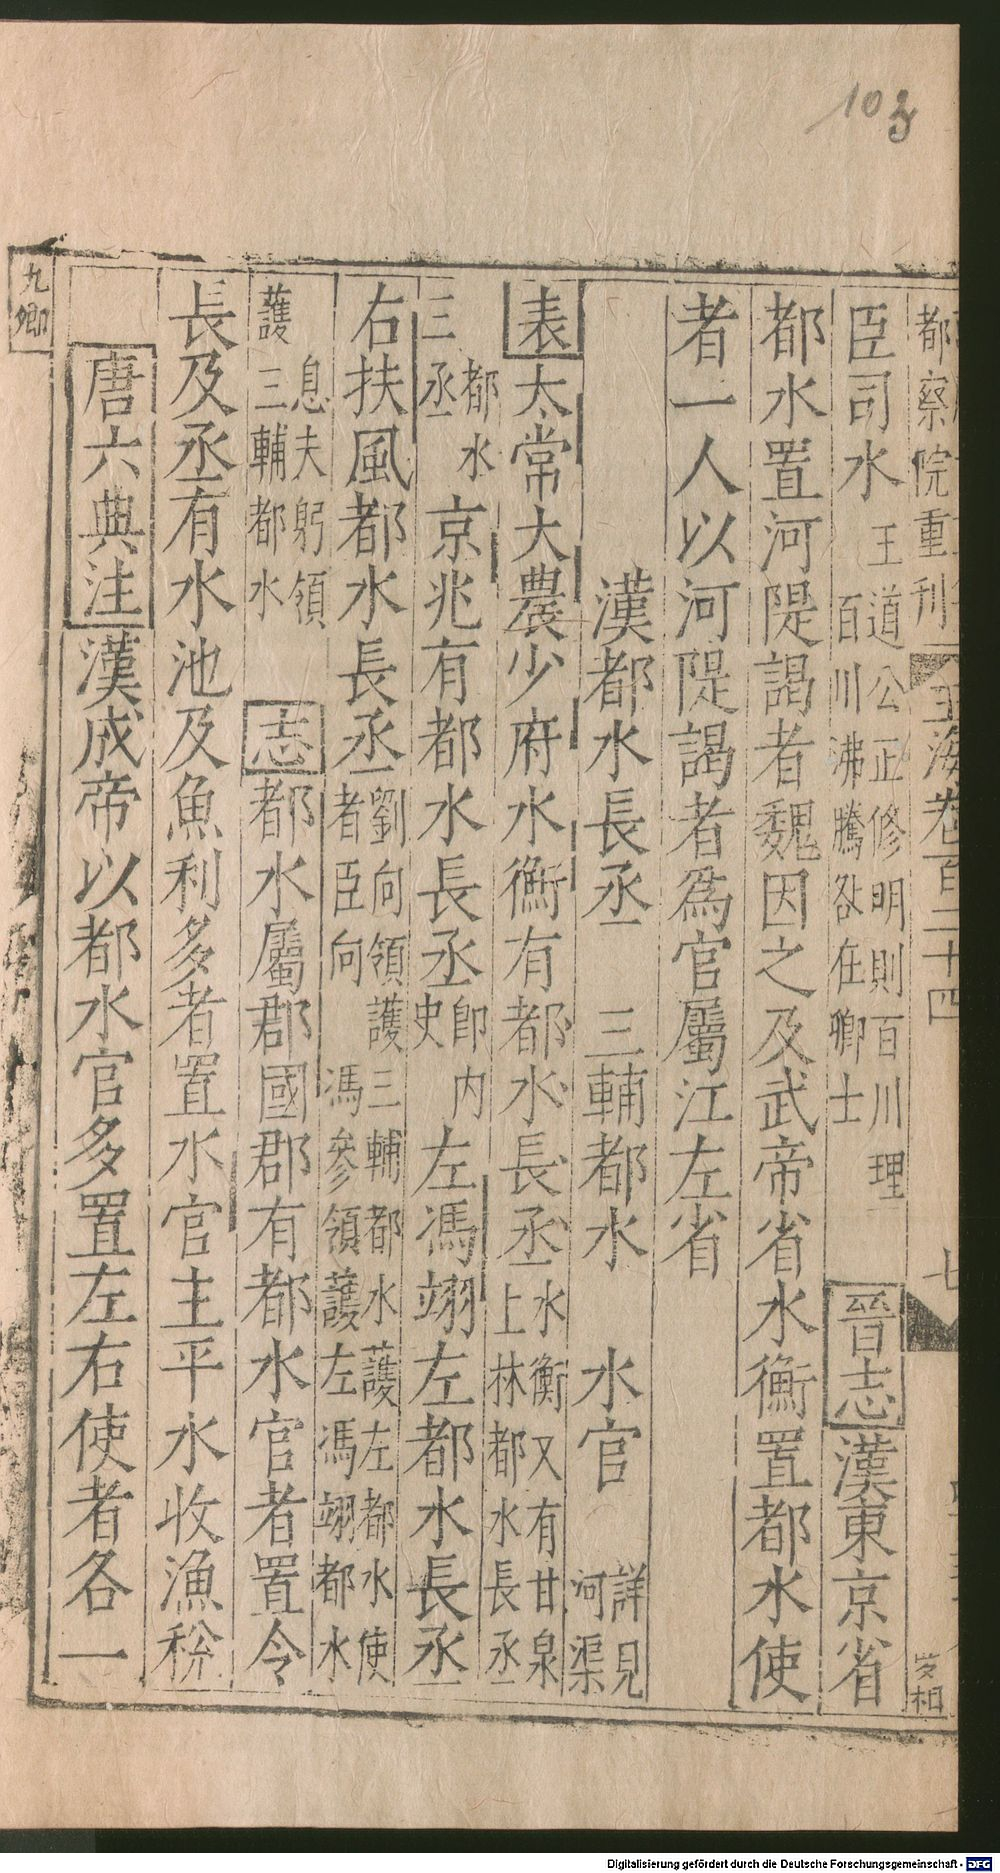 103
都察院重刊
玉海卷百二十四
七
臣司水王道公正修明則百川理百川沸騰咎在卿士晉志漢東京省
都水置河隄謁者魏因之及武帝省水衡置都水使
者一人以河隄謁者爲官屬江左省
漢都水長丞 三輔都水 水官詳見河渠
表太常大農少府水衡有都水長丞水衡又有甘泉上林都水長丞
三丞都水京兆有都水長丞即内史左馮翊左都水長丞
右扶風都水長丞劉向領護三輔都水護左都水使者臣向 馮參領護左馮翊都水
息夫躬領護三輔都水志都水屬郡國郡有都水官者置令
長及丞有水池及魚利多者置水官主平水收漁稅
唐六典注漢成帝以都水官多置左右使者各一
九卿
Digitalisierung gefördert durch die Deutsche Forschungsgemeinschaft - DFG